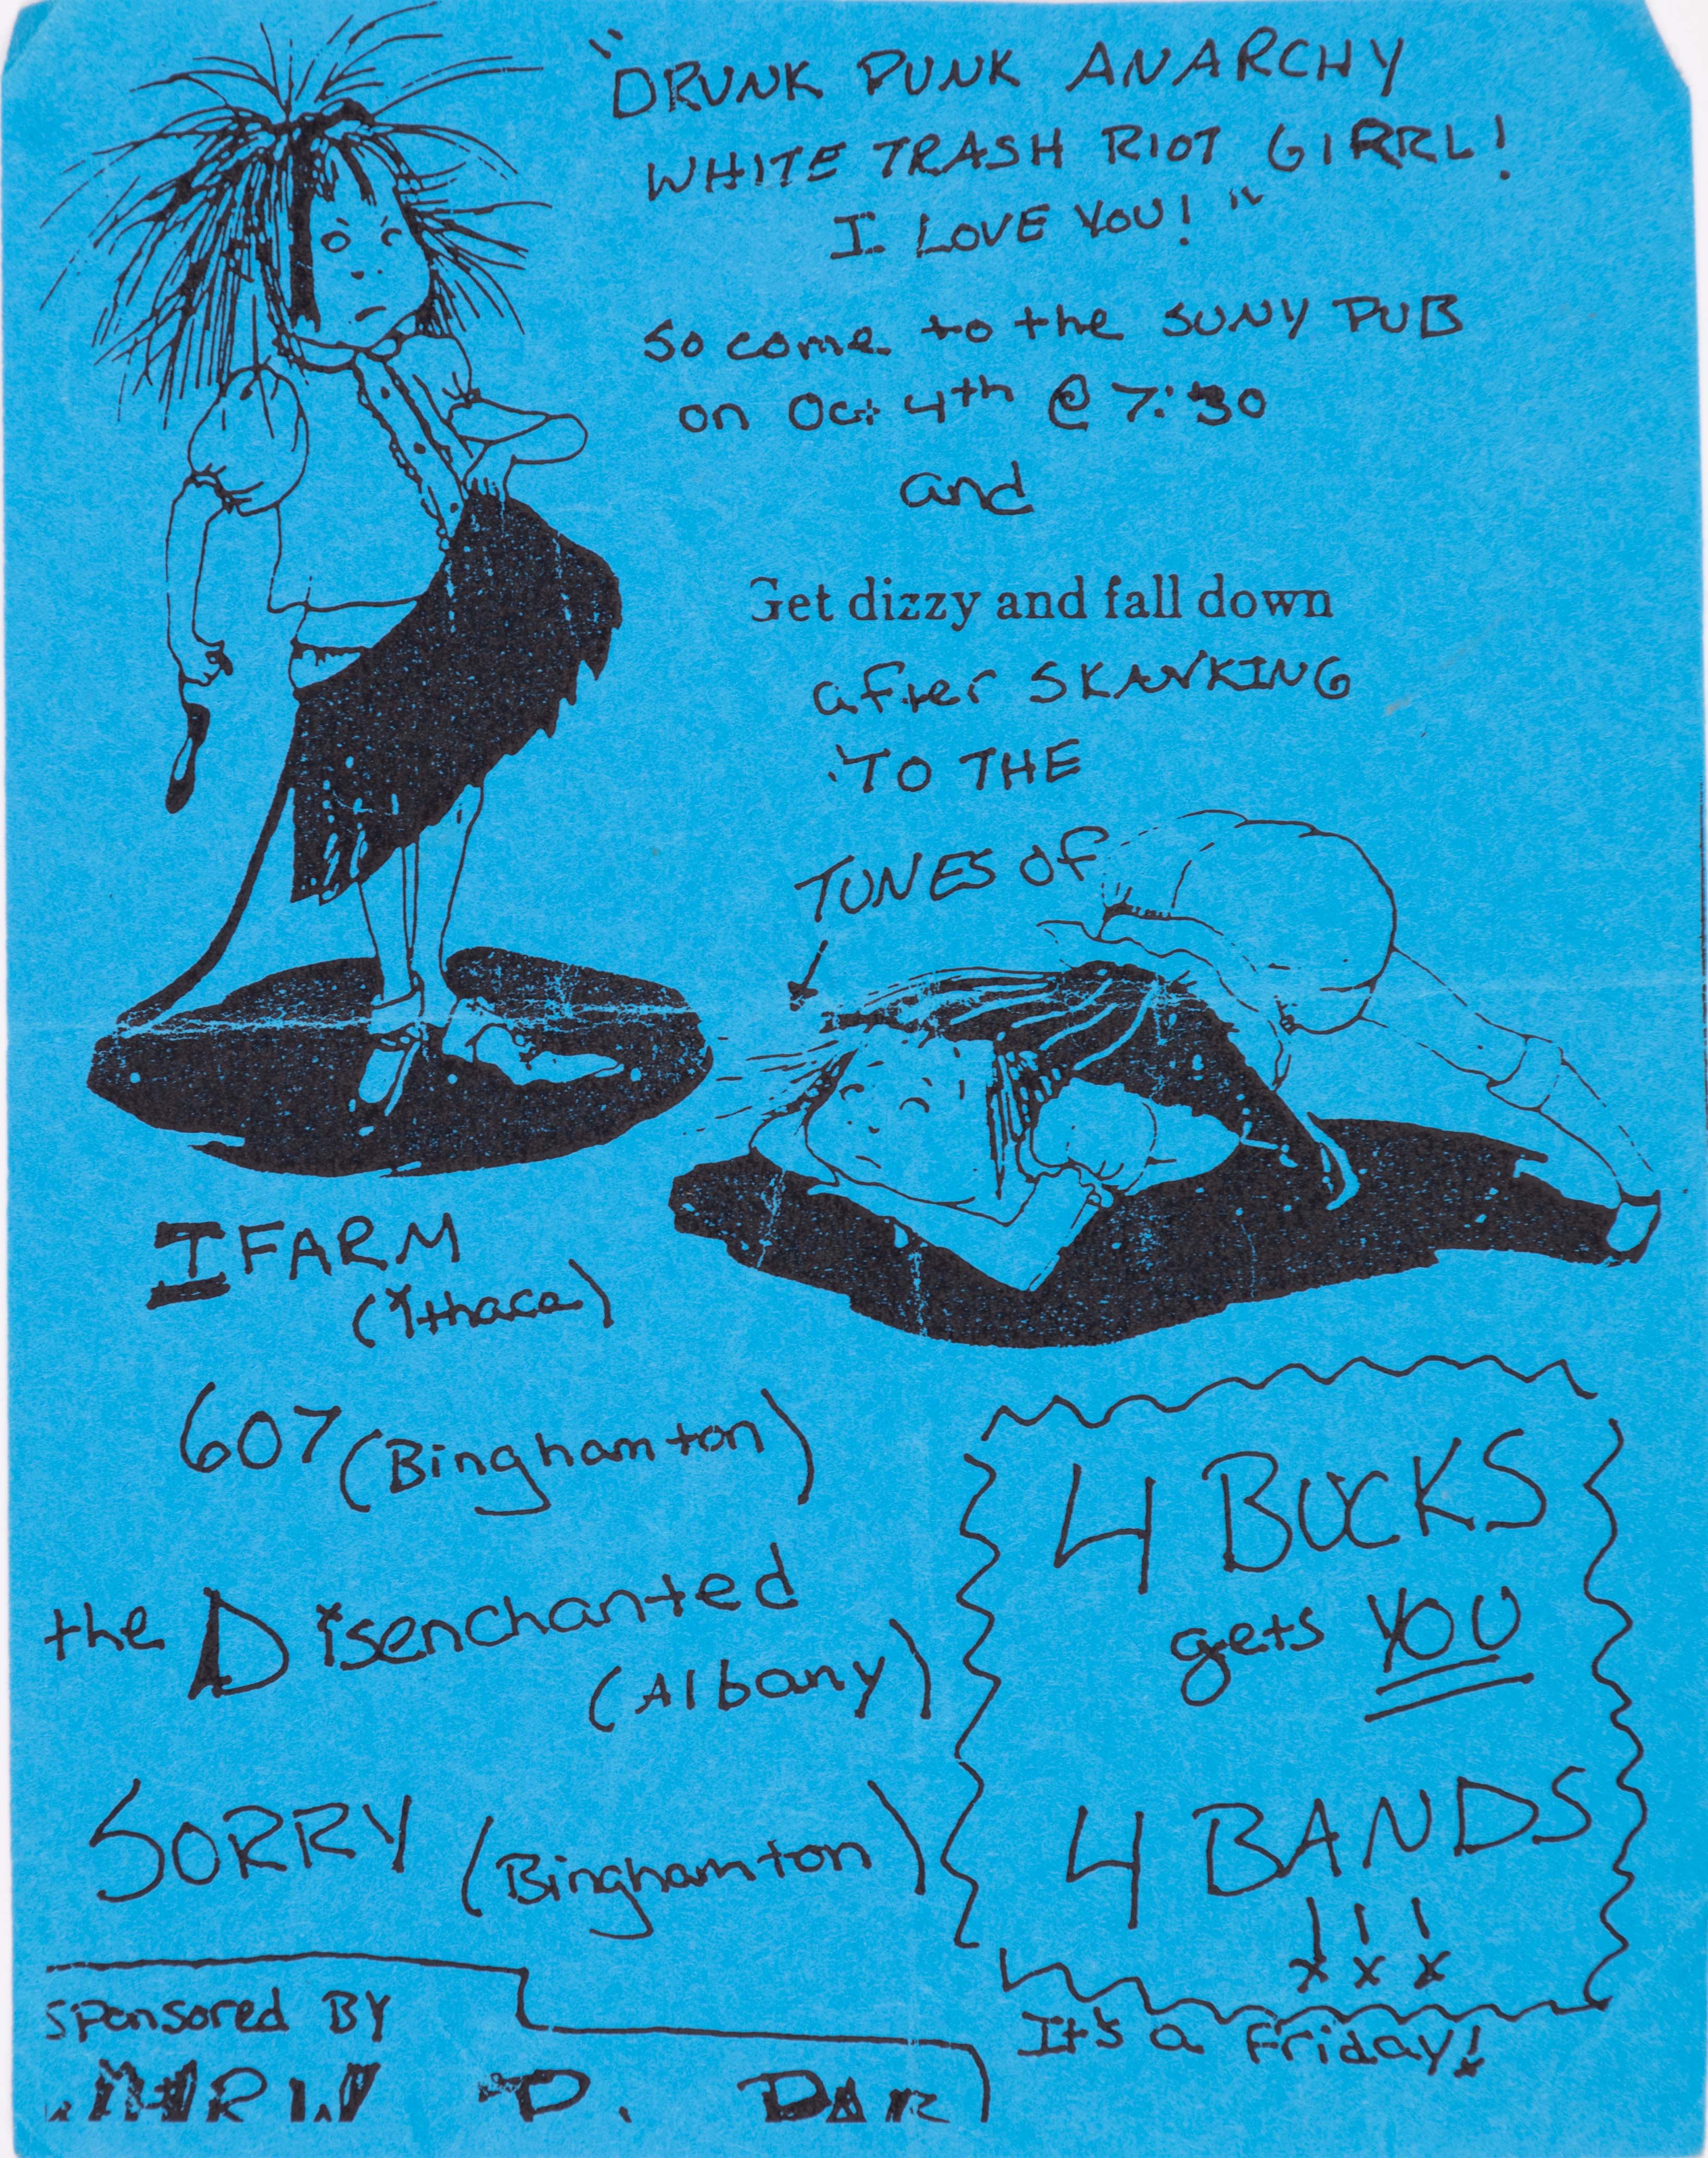 "DRUNK PUNK ANARCHY
WHITE TRASH RIOT GIRRL!
I LOVE YOU!"
So come to the SUNY PUB
on Oct 4th @ 7:30
and
Get dizzy and fall down
after SKANKING
TO THE
TUNES OF
I FARM
(ithaca)
607 (Binghamton)
the Disenchanted
(Albany)
SORRY (Binghamton)
4 BUCKS
gets YOU
4 BANDS
!!!
It's a Friday!
Sponsored BY